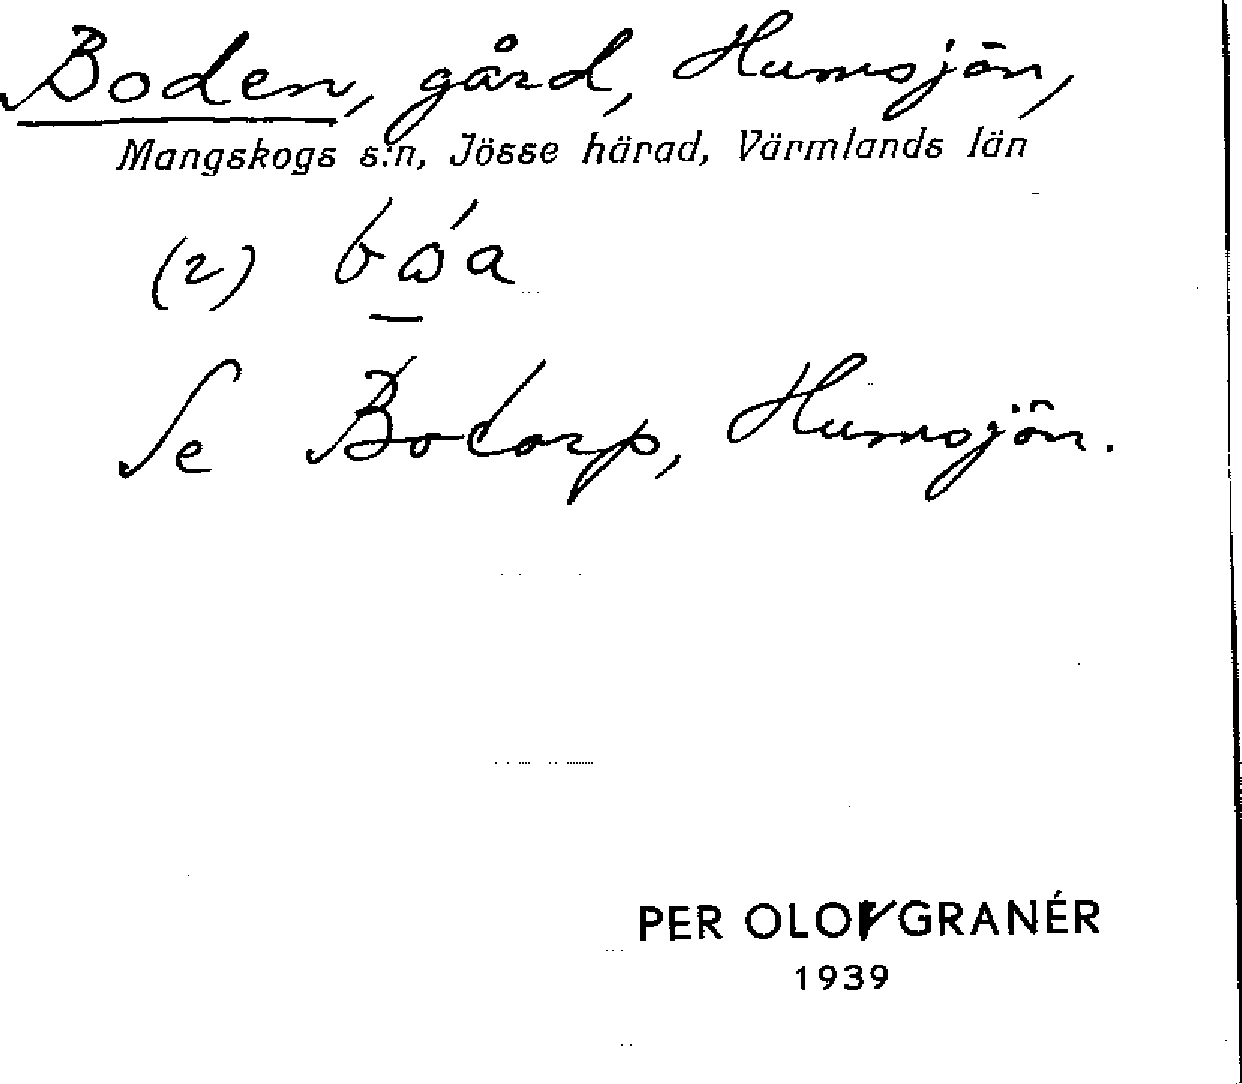 Boden, gård, Humsjön,
Mangskogs s:n, Jösse härad, Värmlands län
(2)
Se Botorp, Humsjön.
PER OLOV GRANÉR
1939